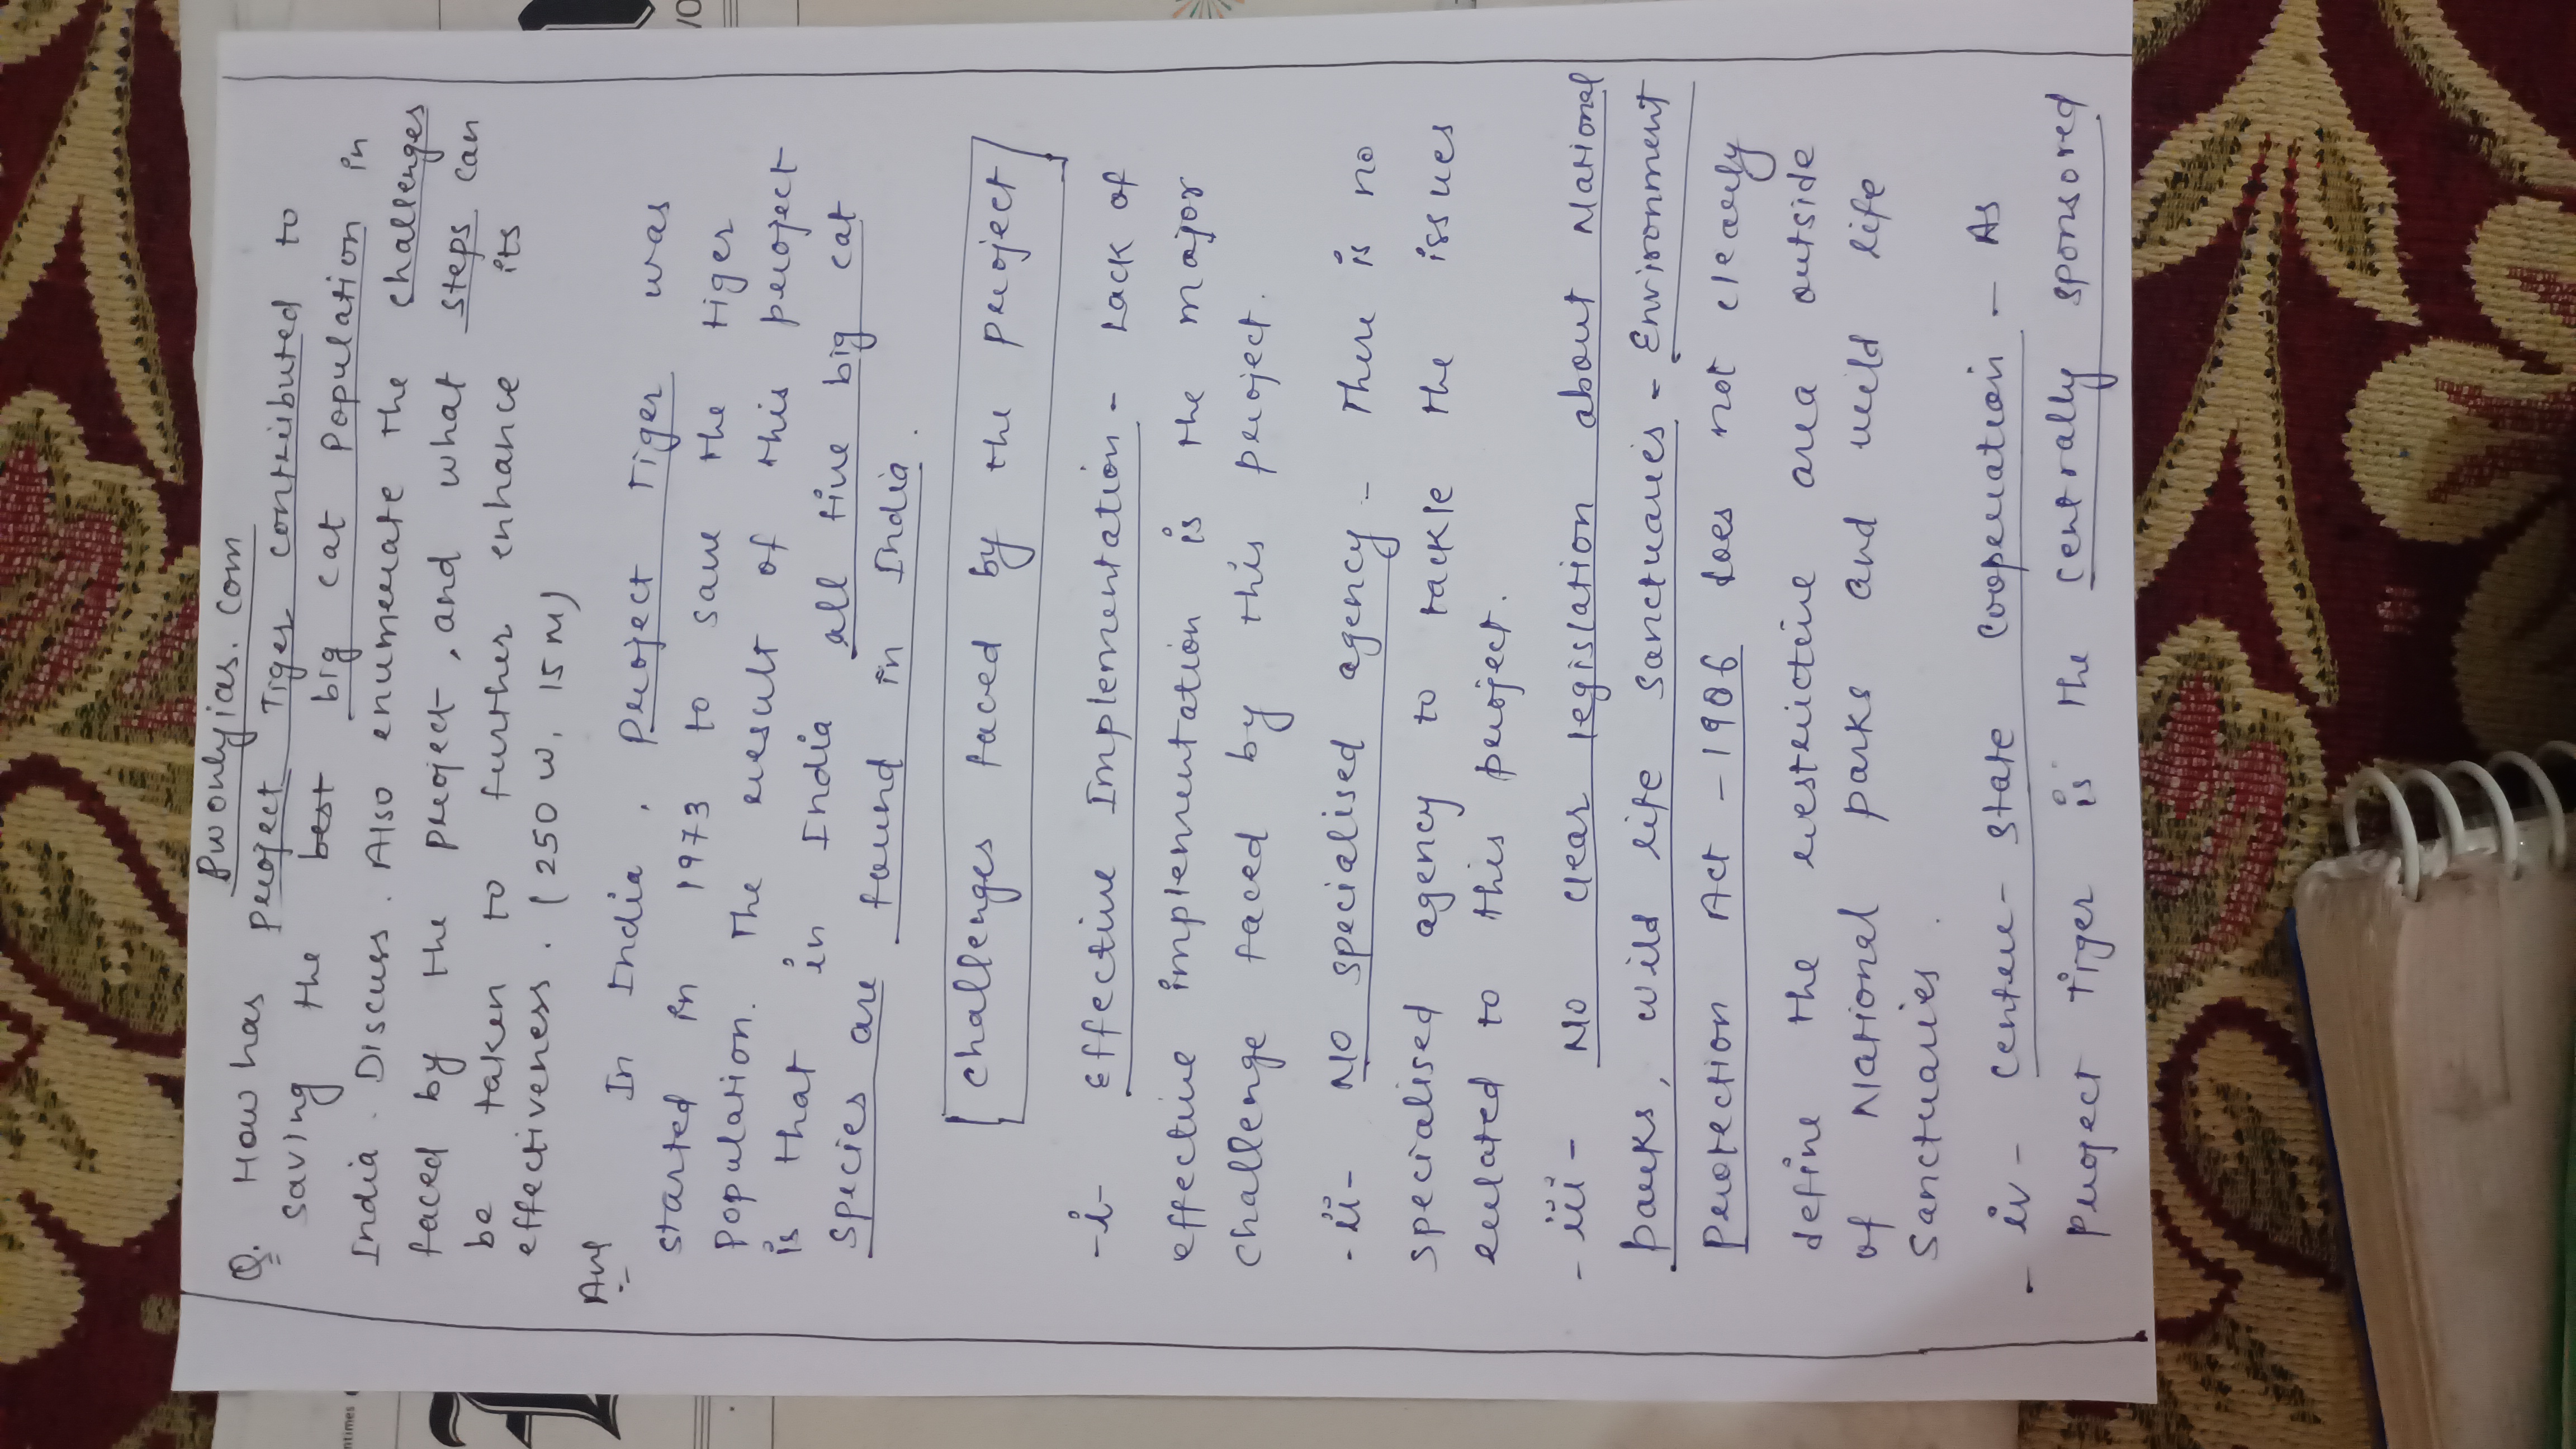 Pwonlyias.com
Q. How has Project Tiger contributed to
saving the best big cat Population in
India. Discuss. Also enumerate the challenges
faced by the project, and what steps can
be taken to further enhance its
effectiveness. (250 w, 15 M)
Ans
In India, Project Tiger was
started in 1973 to save the tiger
population. The result of this project
is that in India all five big cat
species are found in India.
Challenges faced by the project
-i- Effective Implementation - Lack of
effective implementation is the major
challenge faced by this project.
-ii- No specialised agency - There is no
specialised agency to tackle the issues
related to this project.
-iii- No clear legislation about National
parks, wild life Sanctuaries - Environment
Protection Act - 1986 does not clearly
define the restrictive area outside
of National parks and wild life
Sanctuaries.
- iv - Centre - State Cooperation - As
project tiger is the centrally sponsored